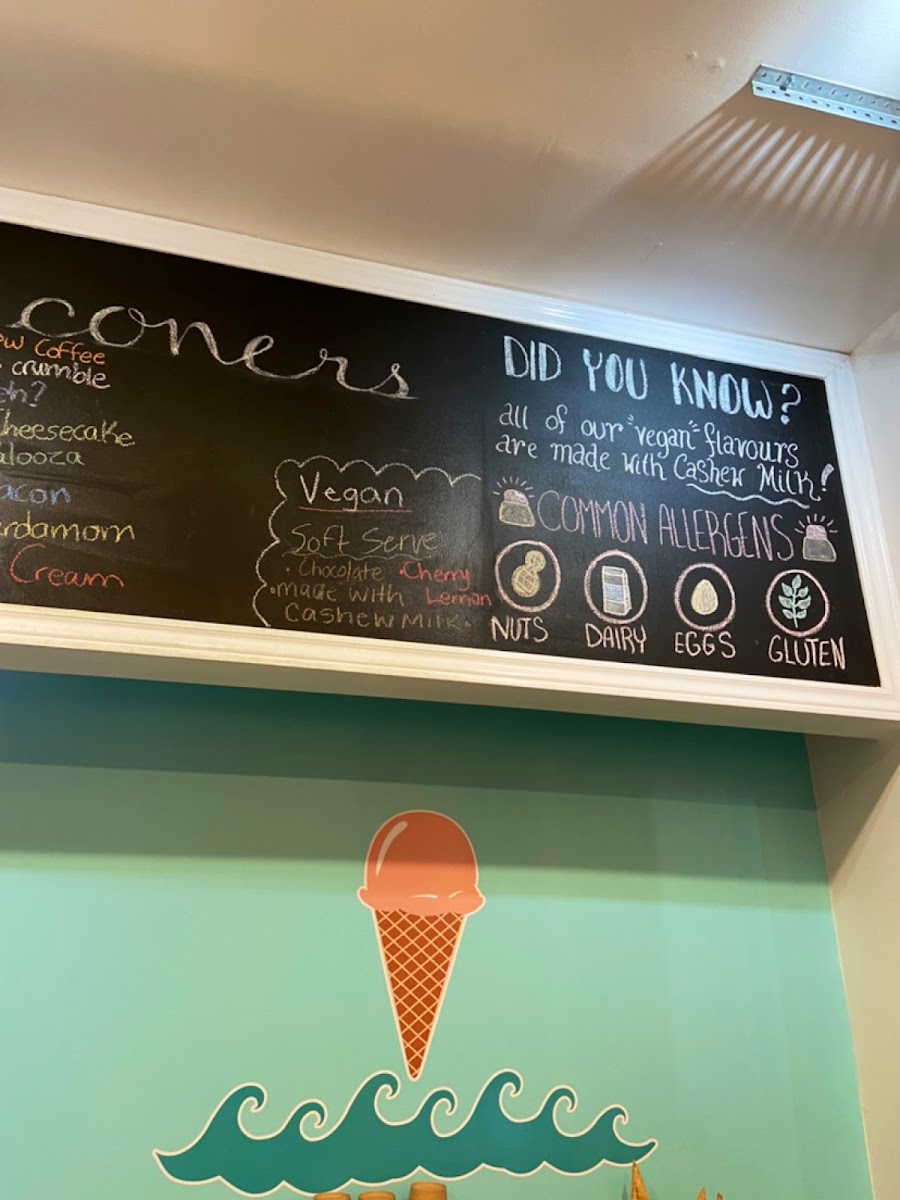 coners
Coffee
crumble
Cheesecake
Cream
Vegan
Soft Serve
• Chocolate • Cherry
• made with Lemon
Cashew Milk •
DID YOU KNOW?
all of our "vegan" flavours
are made with Cashew Milk!
COMMON ALLERGENS
NUTS
DAIRY
EGGS
GLUTEN